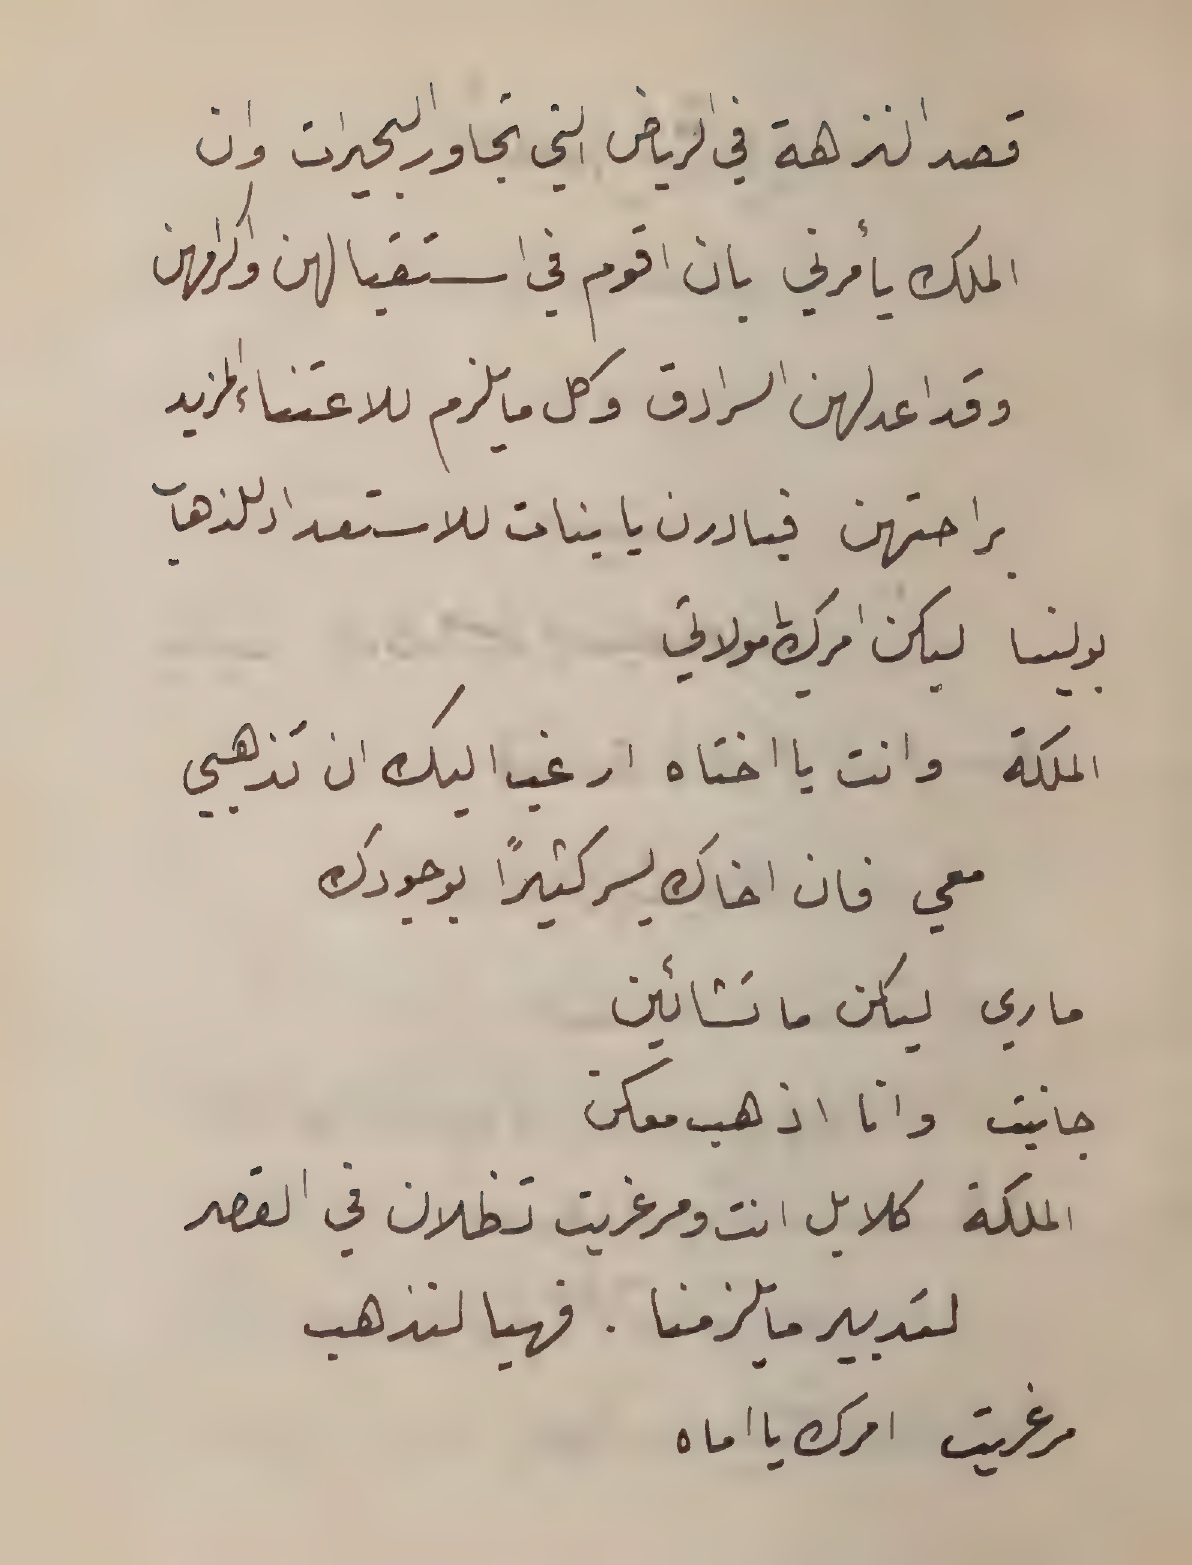 قصد النزهة في الرياض التي تجاور البحيرات وان
الملك يأمرني بان اقوم في استقبالهن واكرامهن
وقد اعد لهن السرادق وكل ما يلزم للاعتناء المزيد
براحتهن فبادرن يا بنات للاستعداد للذهاب
بولينا ليكن امرك يا مولاتي
الملكة وانت يا اختاه ارغب اليك ان تذهبي
معي فان اخاك يسر كثيرًا بوجودك
ماري ليكن ما تشائين
جانيت وانا اذهب معكن
الملكة كلا بل انت ومرغريت تظلان في القصر
لتدبير ما يلزمنا . فهيا لنذهب
مرغريت امرك يا اماه